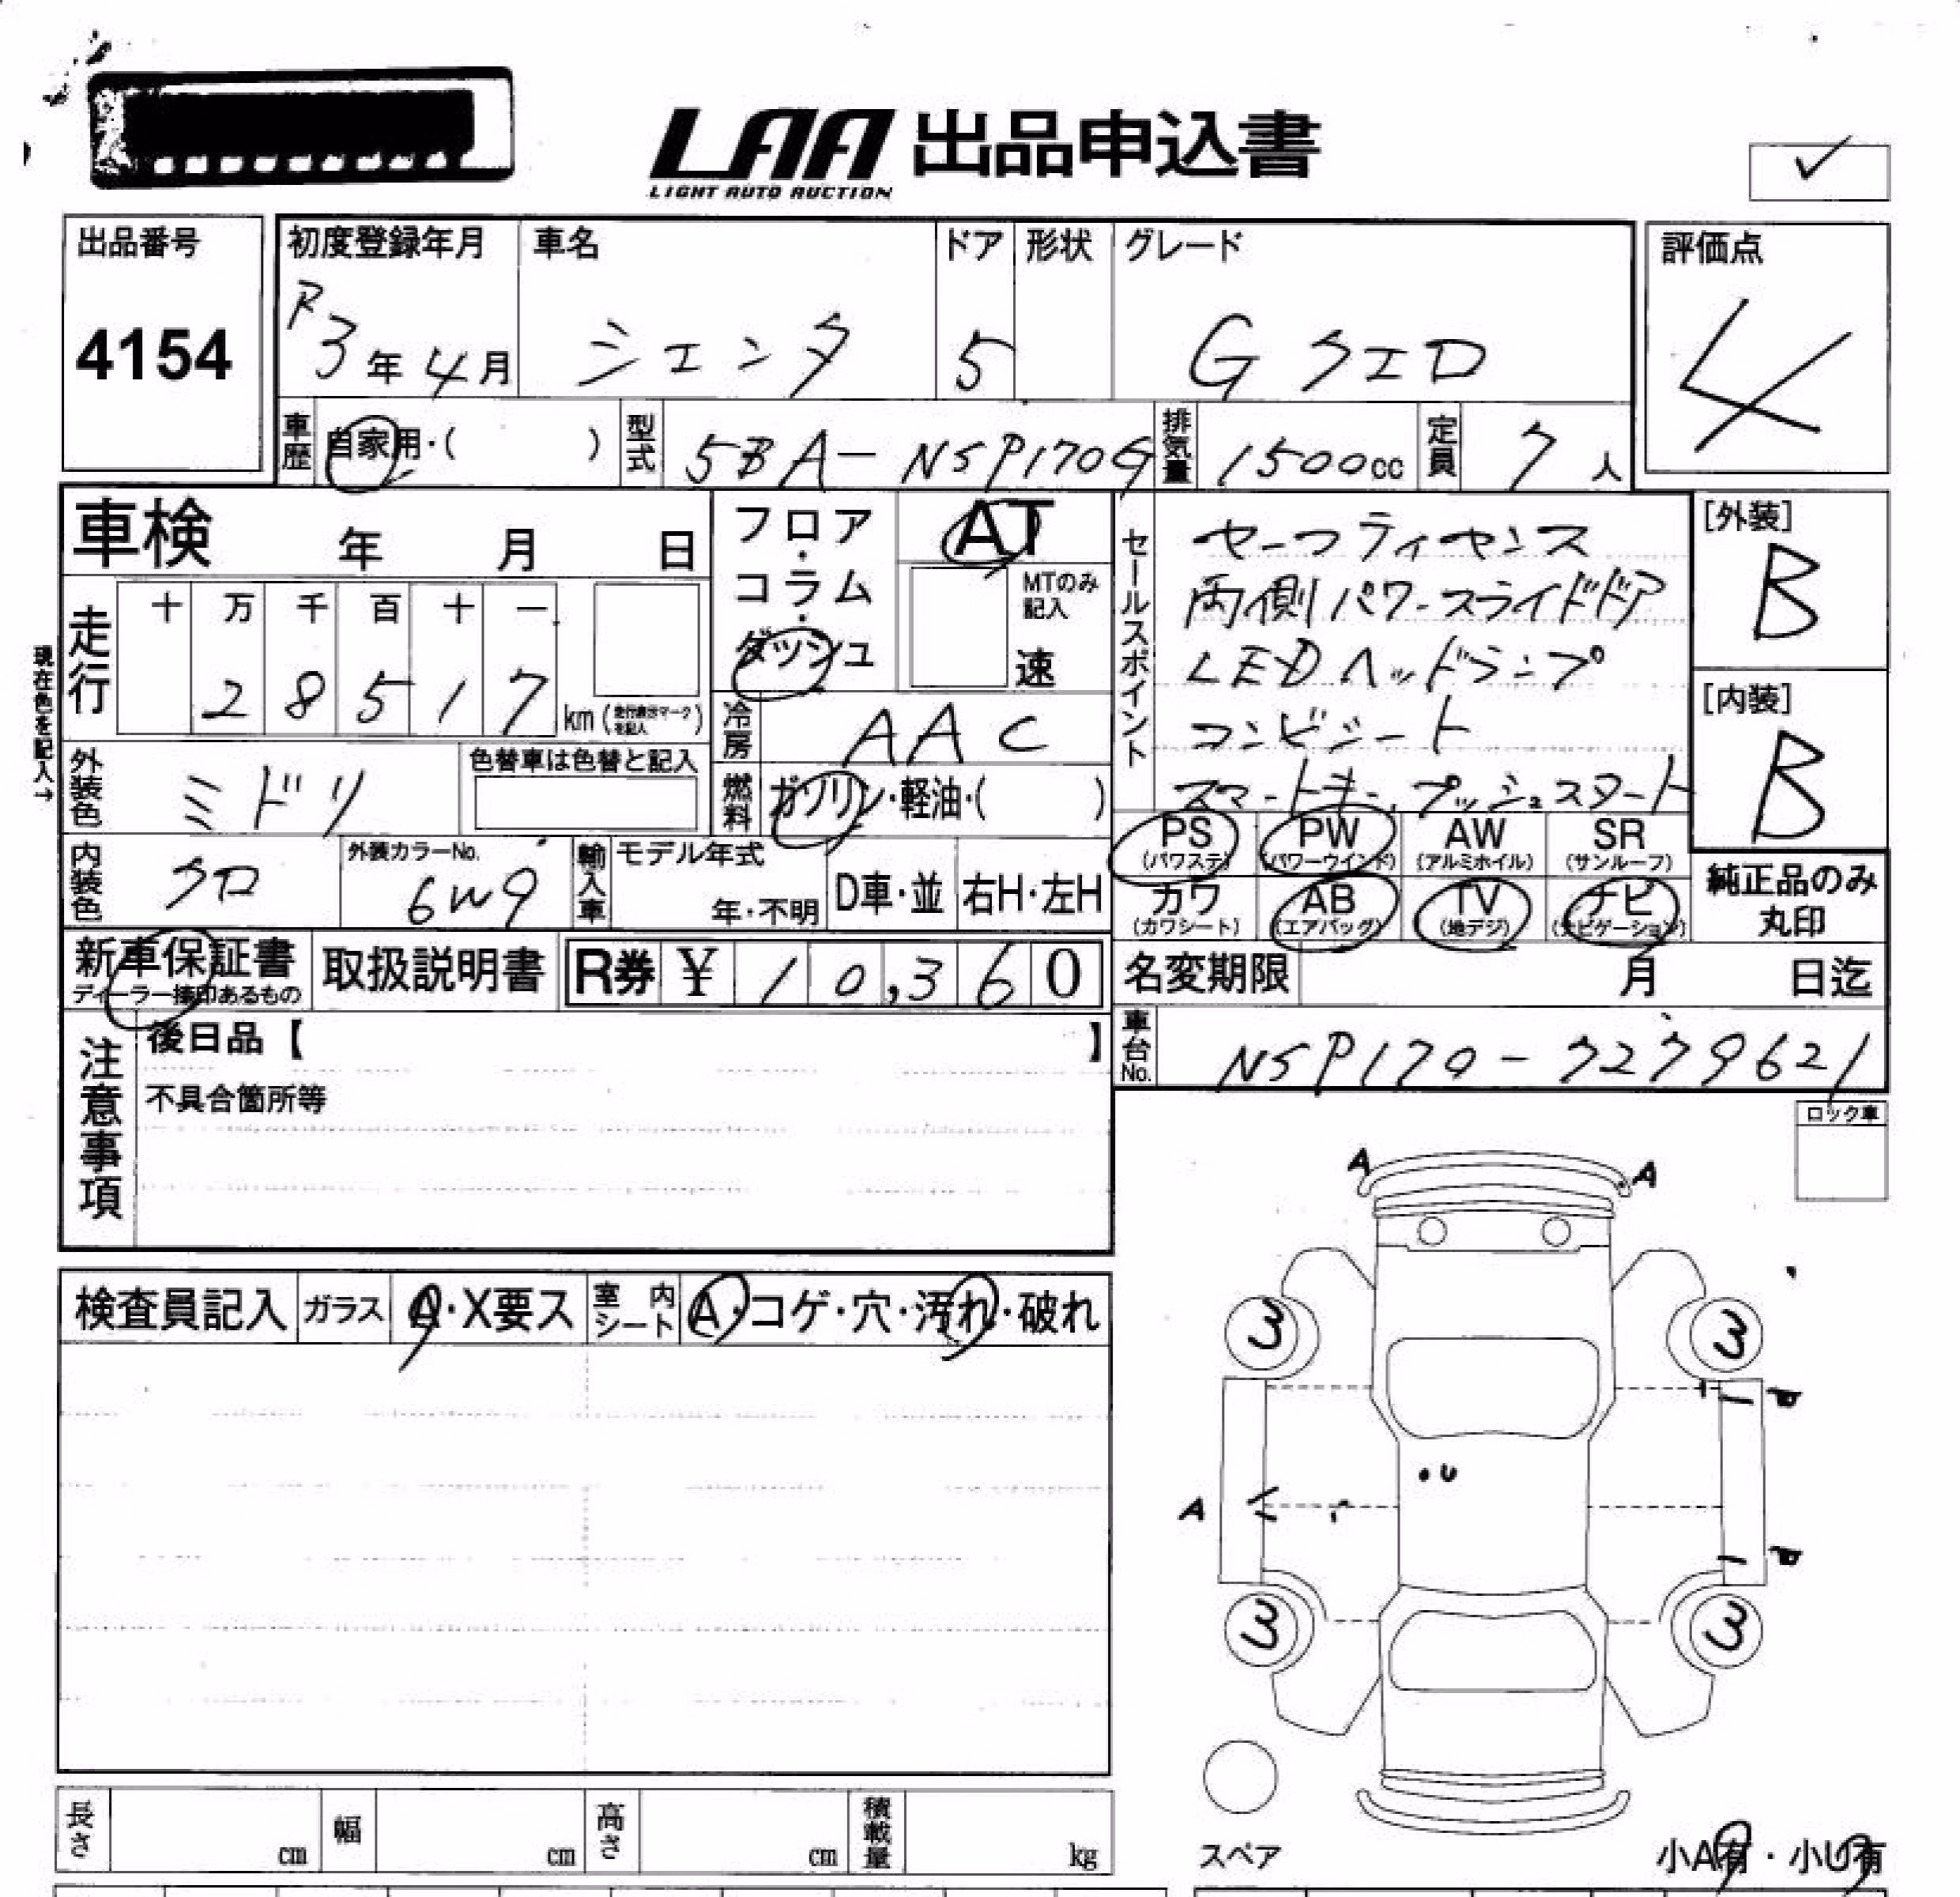 LAA 出品申込書
LIGHT AUTO AUCTION
出品番号
4154
初度登録年月
R3年4月
車名
シエンタ
ドア
5
形状
グレード
G クエロ
評価点
4
車歴 自家用・( )
型式 5BA-NSP170G
排気量 1500cc
定員 7人
車検 年 月 日
走行 十 万 千 百 十 一
2 8 5 1 7 km
現在色を記入→
外装色 ミドリ
色替車は色替と記入
内装色 クロ
外装カラーNo. 6W9
輸入車 モデル年式 年・不明 D車・並 右H・左H
フロア・コラム・ダッシュ
AT
MTのみ記入
速
冷房 AAC
燃料 ガソリン・軽油・( )
セールスポイント
セーフティセンス
両側パワースライドドア
LEDヘッドランプ
コンビシート
スマートキー、プッシュスタート
[外装]
B
[内装]
B
PS (パワステ) PW (パワーウインド) AW (アルミホイル) SR (サンルーフ)
カワ (カワシート) AB (エアバッグ) TV (地デジ) ナビ (ナビゲーション)
純正品のみ
丸印
新車保証書
ディーラー捺印あるもの
取扱説明書
R券 ¥ 10,360
名変期限 月 日迄
車台No. NSP170-7279621
注意事項
後日品【 】
不具合箇所等
ロック車
検査員記入 ガラス A・X要ス 室内シート A・コゲ・穴・汚れ・破れ
A A
3 3
A
U
3 3
スペア
小A有・小U有
長さ cm 幅 cm 高さ cm 積載量 kg